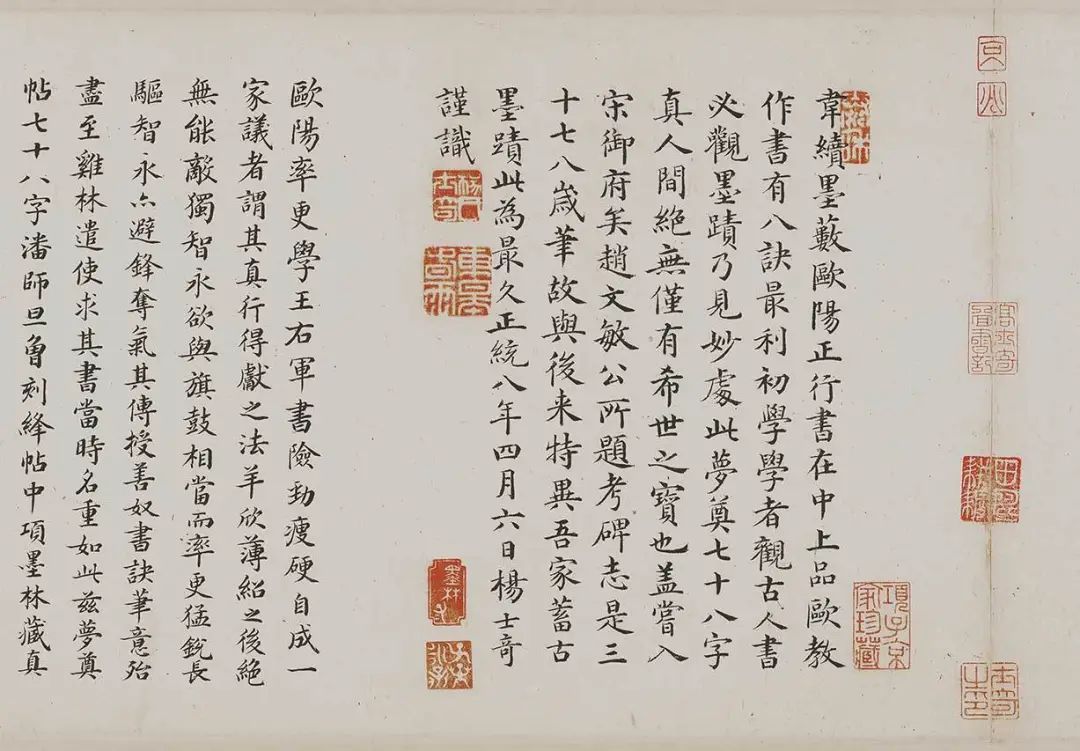 韋續墨藪歐陽正行書在中上品歐教
作書有八訣最利初學學者觀古人書
必觀墨蹟乃見妙處此夢奠七十八字
真人間絶無僅有希世之寶也蓋嘗入
宋御府矣趙文敏公所題考碑志是三
十七八歲筆故與後来特異吾家蓄古
墨蹟此為最久正統八年四月六日楊士竒
謹識
歐陽率更學王右軍書險勁瘦硬自成一
家議者謂其真行得獻之法羊欣薄紹之後絶
無能敵獨智永欲與旗鼓相當而率更猛銳長
驅智永亦避鋒奪氣其傳授善奴書訣筆意殆
盡至雞林遣使求其書當時名重如此兹夢奠
帖七十八字潘師旦曾刻絳帖中項墨林藏真
項子京
家珍藏
墨林